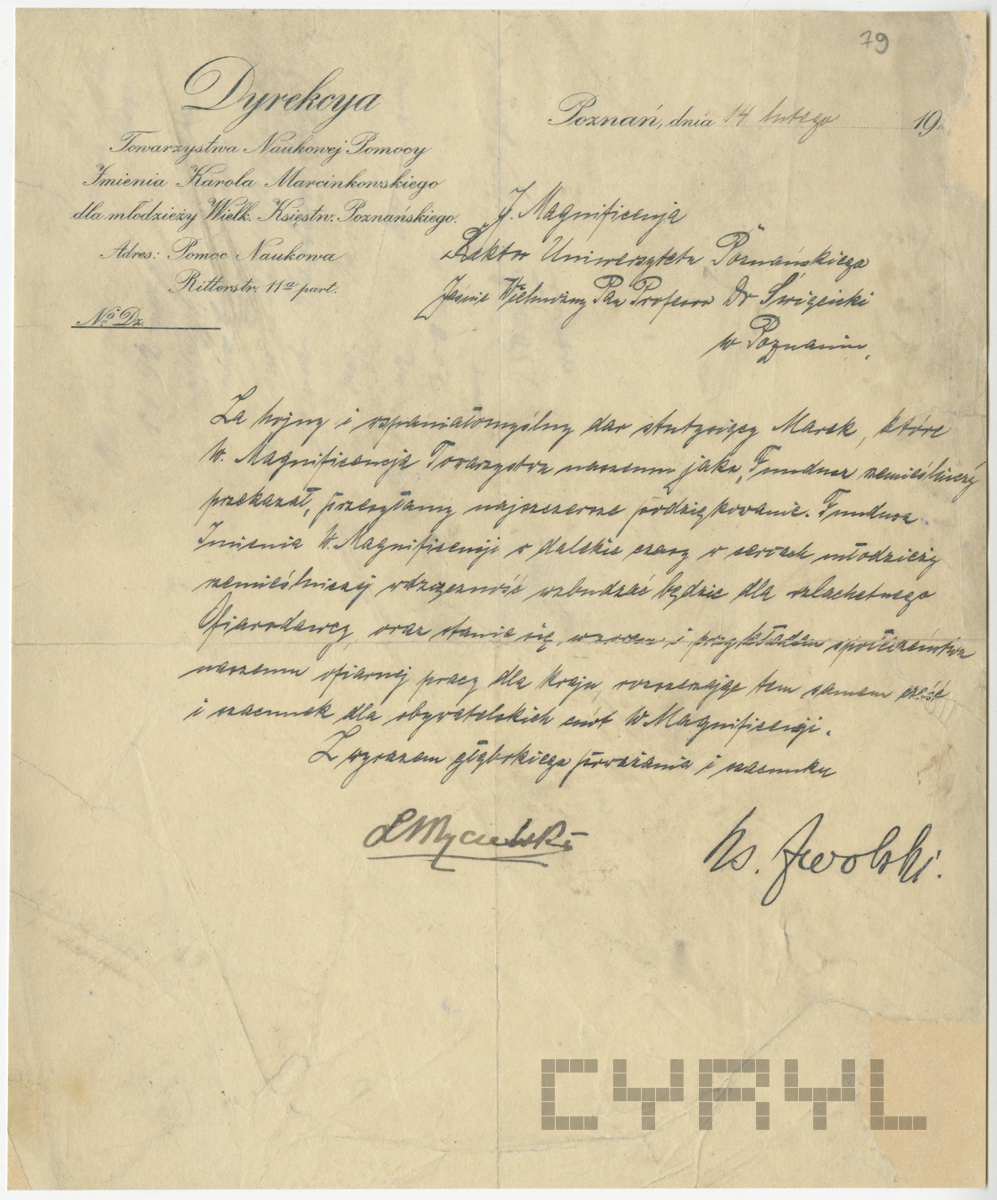 79
Dyrekcya
Towarzystwa Naukowej Pomocy
Imienia Karola Marcinkowskiego
dla młodzieży Wielk. Księstw. Poznańskiego.
Adres: Pomoc Naukowa
Ritterstr. 11a part.
No Dz.
Poznań, dnia 14 lutego 19
J. Magnificencja
Rektor Uniwersytetu Poznańskiego
Jaśnie Wielmożny Pan Profesor Dr Święcicki
w Poznaniu.
Za hojny i wspaniałomyślny dar stutysięcy Marek, które
W. Magnificencja Towarzystwu naszemu jako „Fundusz rzemieślniczy
przekazał, przesyłamy najszczersze podziękowanie. Fundusz
Imienia W. Magnificencji w dalekie czasy w sercach młodzieży
rzemieślniczej wdzięczność wzbudzać będzie dla szlachetnego
Ofiarodawcy, oraz stanie się wzorem i przykładem społeczeństwu
naszemu ofiarnej pracy dla kraju, rozszerzając tem samem cześć
i szacunek dla obywatelskich cnót W. Magnificencji.
Z wyrazem głębokiego poważania i szacunku
LMycielski
Ks. Zwolski.
CYRYL